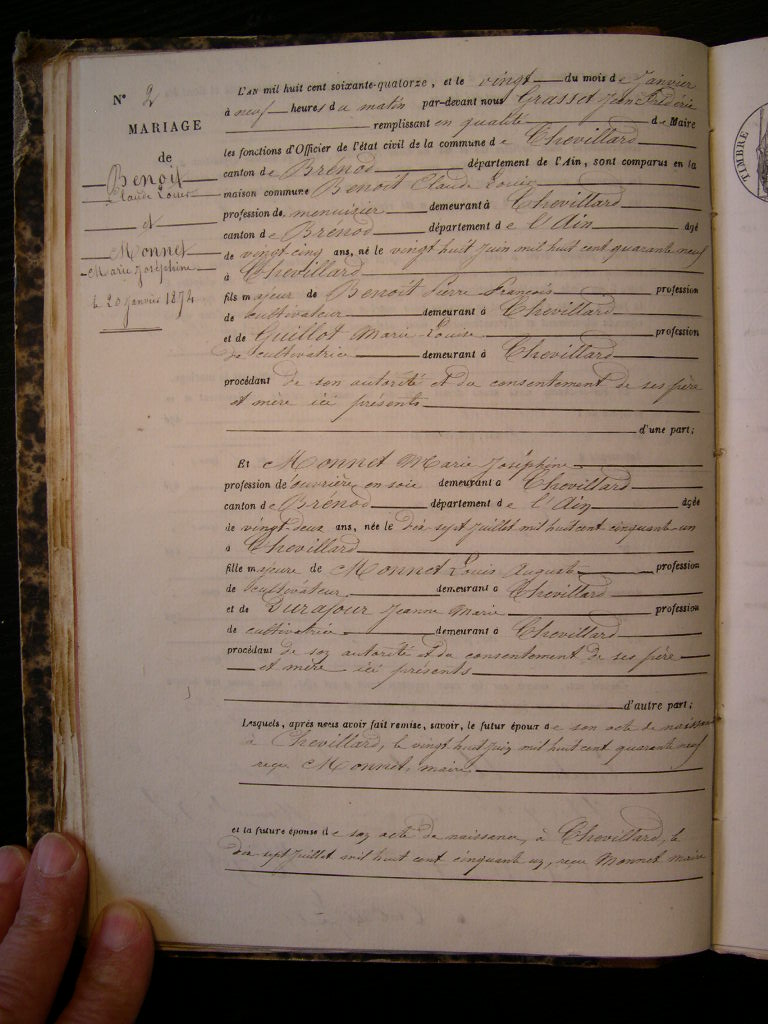 N° 2
MARIAGE
de
Benoit
Claude Louis
et
Monnet
Marie Joséphine
le 20 janvier 1874
L'AN mil huit cent soixante-quatorze, et le vingt du mois de Janvier
à neuf heures du matin par-devant nous Grasset Jean Frédéric
remplissant en qualité de Maire
les fonctions d'Officier de l'état civil de la commune de Chevillard
canton de Brénod département de l'Ain, sont comparus en la
maison commune Benoit Claude Louis
profession de menuisier demeurant à Chevillard
canton de Brenod département de l'Ain âgé
de vingt-cinq ans, né le vingt huit Juin mil huit cent quarante neuf
à Chevillard
fils majeur de Benoit Pierre François profession
de cultivateur demeurant à Chevillard
et de Guillot Marie Louise profession
de cultivatrice demeurant à Chevillard
procédant de son autorité et du consentement de ses père
et mère ici présents
d'une part;
Et Monnet Marie Joséphine
profession de ouvrière en soie demeurant à Chevillard
canton de Brénod département de l'Ain âgée
de vingt-deux ans, née le dix-sept Juillet mil huit cent cinquante-un
à Chevillard
fille majeure de Monnet Louis Auguste profession
de cultivateur demeurant à Chevillard
et de Durafour Jeanne Marie profession
de cultivatrice demeurant à Chevillard
procédant de son autorité et du consentement de ses père
et mère ici présents
d'autre part;
Lesquels, après nous avoir fait remise, savoir, le futur époux de son acte de naissance
à Chevillard, le vingt huit Juin mil huit cent quarante neuf
reçu Monnet, maire
et la future épouse de son acte de naissance, à Chevillard, le
dix sept Juillet mil huit cent cinquante un, reçu Monnet maire
TIMBRE